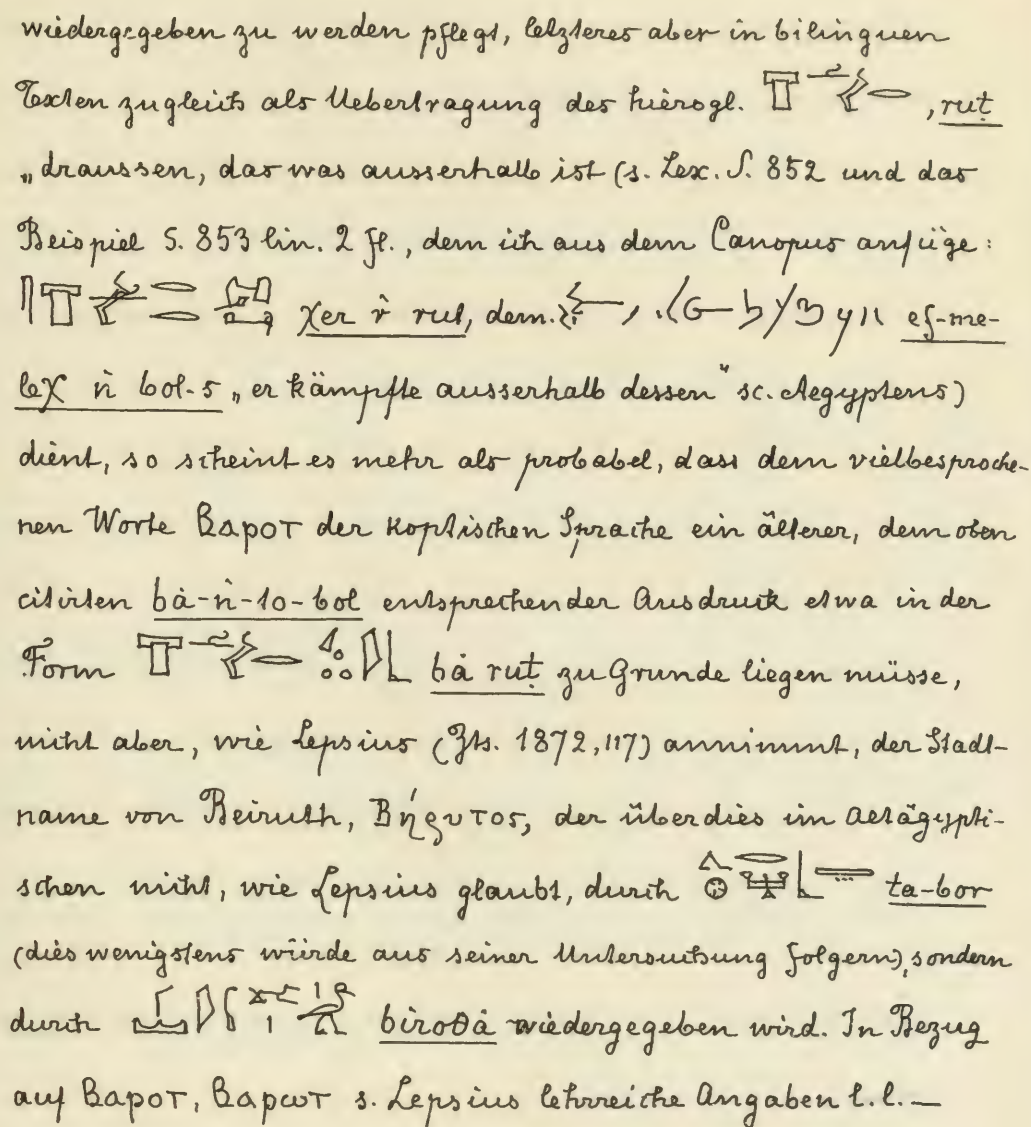 wiedergegeben zu werden pflegt, letzteres aber in bilinguen
Texten zugleich als Uebertragung des hierogl. , ruṭ
„draussen, das was ausserhalb ist (s. Lex. S. 852 und das
Beispiel S. 853 lin. 2 fl., dem ich aus dem Canopus anfüge:
χer r̀ rut, dem. ef-me-
leχ ǹ bol-s „er kämpfte ausserhalb dessen" sc. Aegyptens)
dient, so scheint es mehr als probabel, dass dem vielbesproche-
nen Worte Ⲃⲁⲣⲟⲧ der Koptischen Sprache ein älterer, dem oben
citirten bȧ-ǹ-to-bol entsprechender Ausdruck etwa in der
Form bȧ ruṭ zu Grunde liegen müsse,
nicht aber, wie Lepsius (Zts. 1872,117) annimmt, der Stadt-
name von Beiruth, Βήρυτος, der überdies im Altägypti-
schen nicht, wie Lepsius glaubt, durch ta-bor
(dies wenigstens würde aus seiner Untersuchung folgern), sondern
durch biroθȧ wiedergegeben wird. In Bezug
auf Ⲃⲁⲣⲟⲧ, Ⲃⲁⲣⲱⲧ s. Lepsius lehrreiche Angaben l.l. —